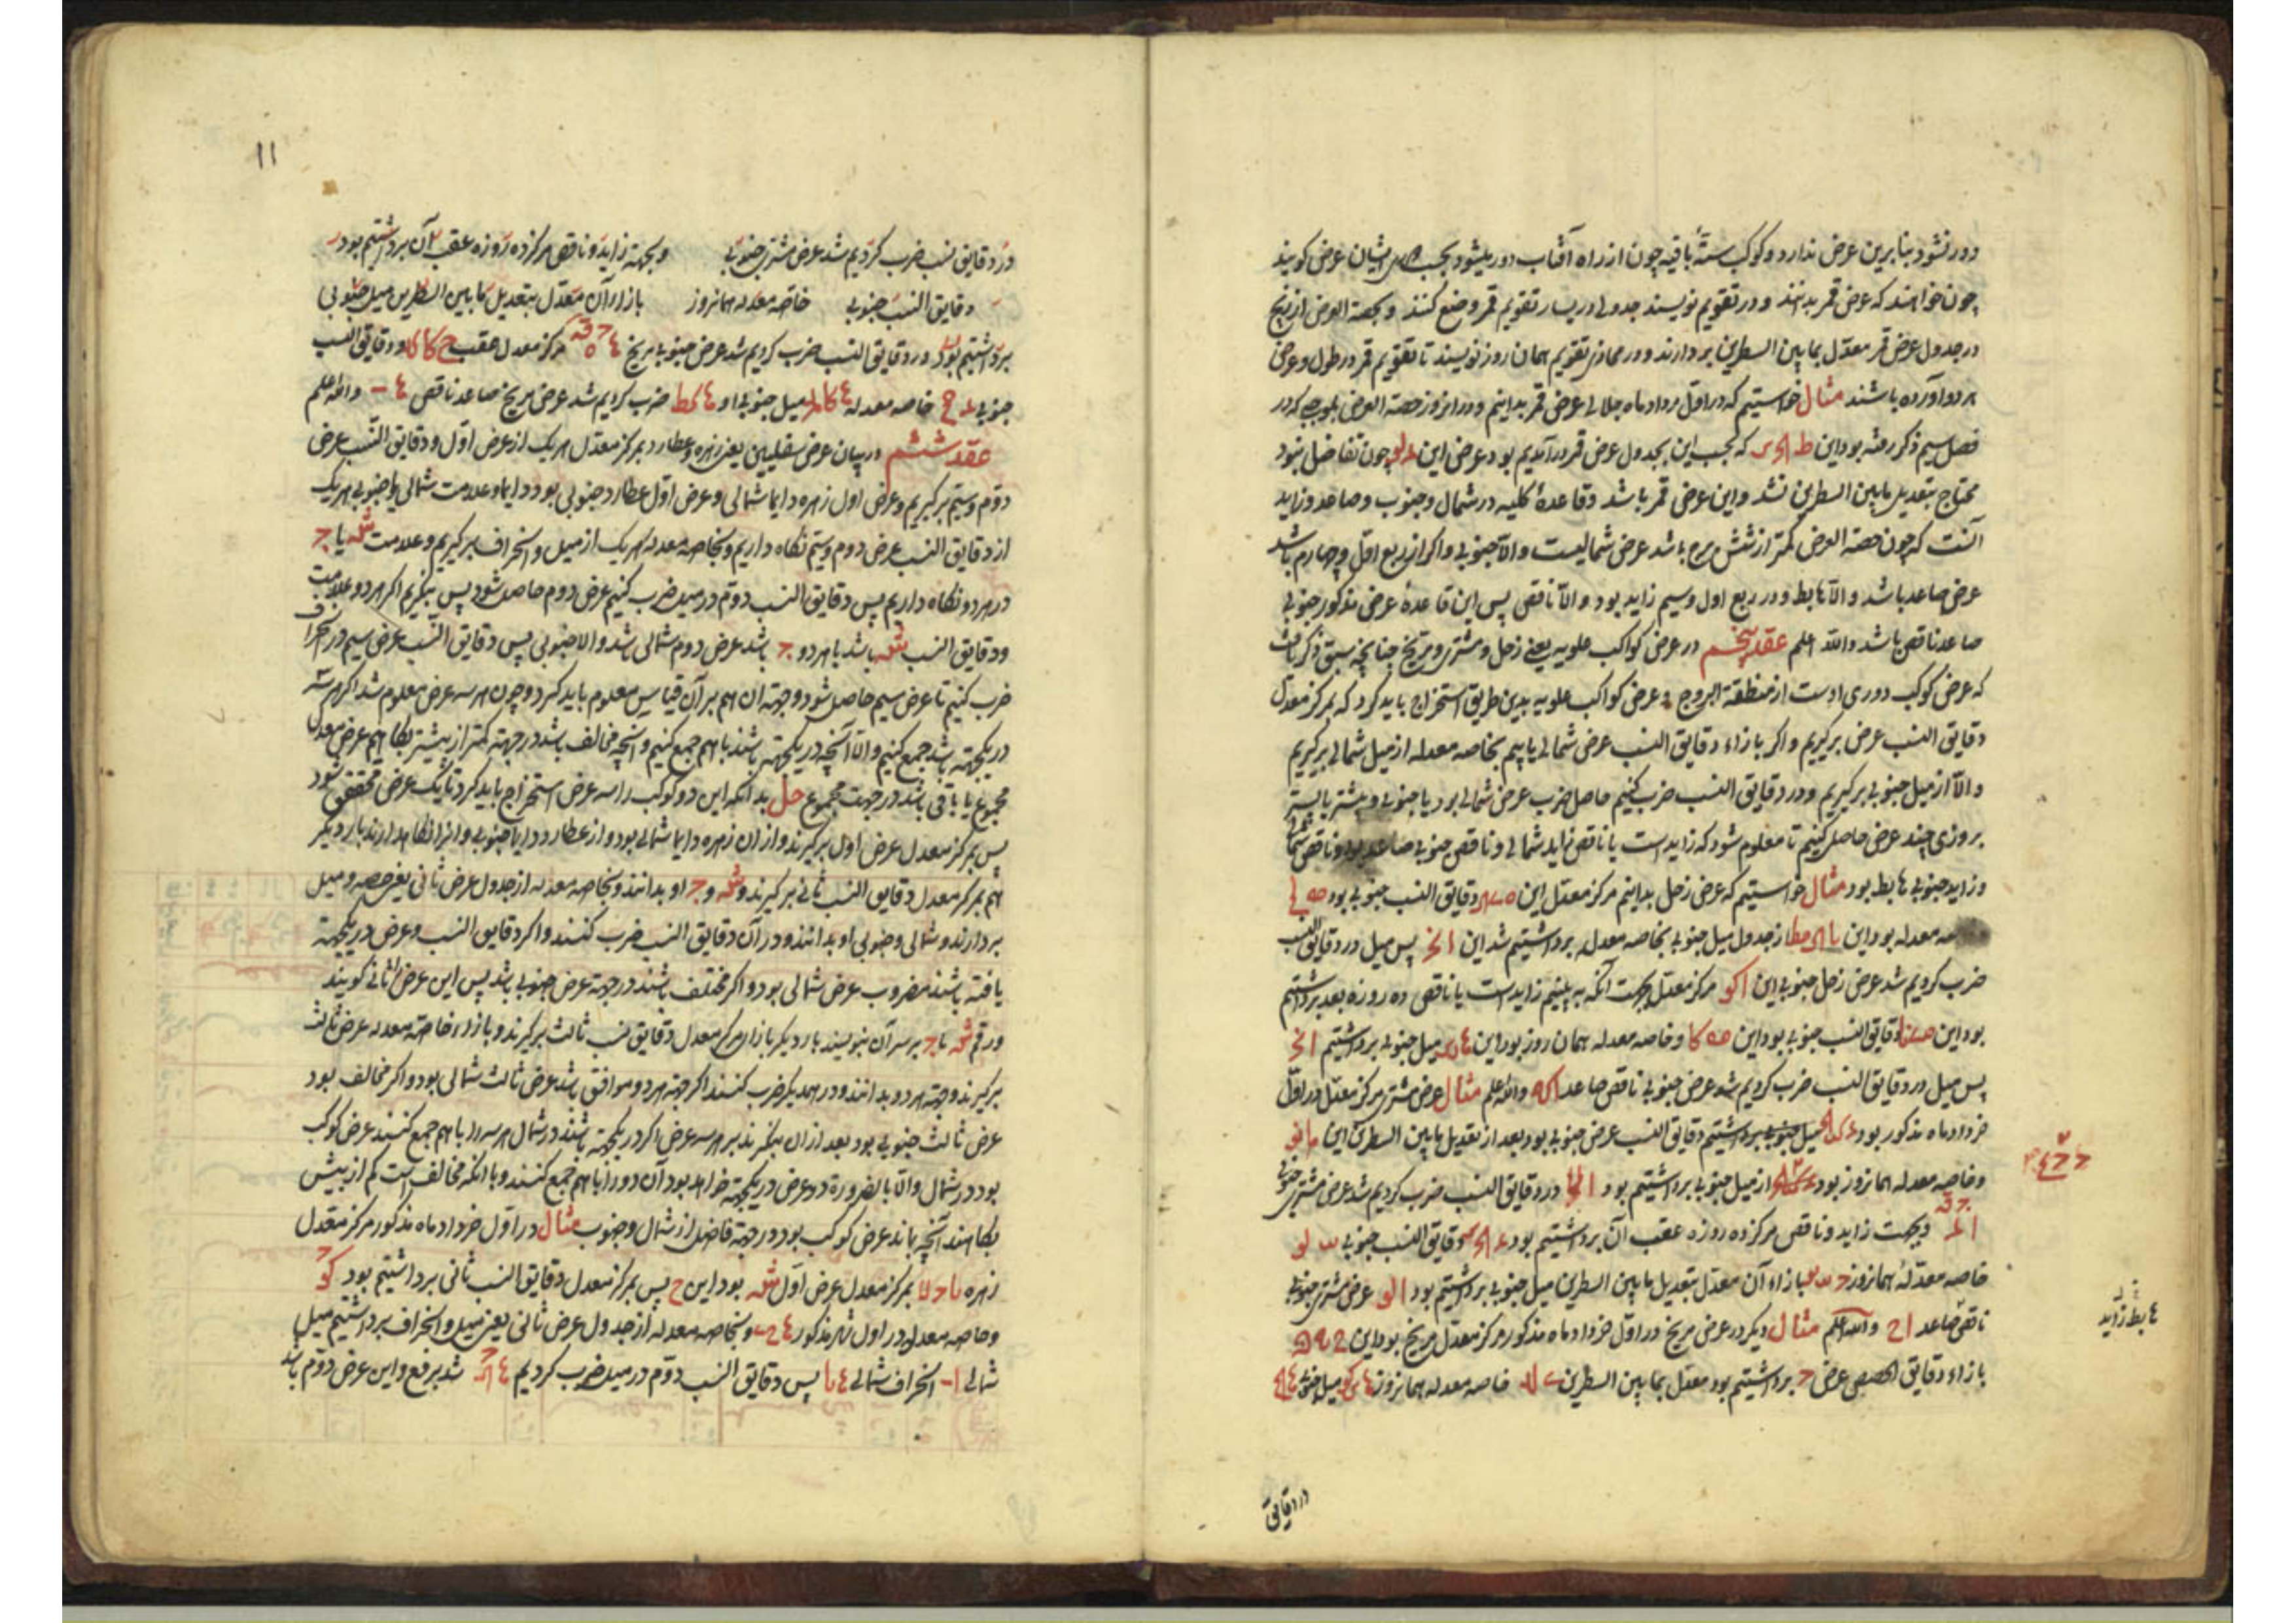 دور نشود بنابرین عرض ندارد و کوکب ستهٔ باقیه چون از راه آفتاب دور میشود بجب ایشان عرض کویند
چون خواهند که عرض قمر بدانند و در تقویم نویسند جدولی در یسار تقویم قمر وضع کنند و بحصة العرض از زیج
در جدول عرض قمر معدل بمابین السطرین بردارند و در محاذی تقویم همان روز نویسند تا تقویم قمر در طول و عرض
هر دو آورده باشند مثال خواستیم که در اول مرداد ماه جلالی عرض قمر بدانیم و در انروز حصة العرض بموجبی که در
فصل سیم ذکر رفته بود این که بجب این بجدول عرض قمر در آمدیم بود عرض این چون تفاضل نبود
محتاج بتعدیل مابین السطرین نشد و این عرض قمر باشد و قاعدهٔ کلیه در شمال و جنوب و صاعد و زاید
آنست که چون حصة العرض کمتر از شش برج باشد عرض شمالیست و الا جنوبی و اکر از ربع اول و چهارم باشد
عرض صاعد باشد و الا هابط و در ربع اول و سیم زاید بود و الا ناقص پس این قاعدهٔ عرض مذکور جنوبی
صاعد ناقص باشد والله اعلم عقد پنجم در عرض کواکب علویه یعنی زحل و مشتری و مریخ چنانچه سبق ذکر یافت
که عرض کوکب دوری اوست از منطقة البروج و عرض کواکب علویه بدین طریق استخراج باید کرد که بمرکز معدل
دقایق النسب عرض برکیریم و اکر بازاء دقایق النسب عرض شمالی یابیم بخاصه معدله از میل شمالی برکیریم
و الا از میل جنوبی برکیریم و در دقایق النسب ضرب کنیم حاصل ضرب عرض شمالی بود یا جنوبی و بیشتر یا پستر
بروزی چند عرض حاصل کنیم تا معلوم شود که زاید است یا ناقص زاید شمالی و ناقص جنوبی صاعد بود و ناقص شمالی
و زاید جنوبی هابط بود مثال خواستیم که عرض زحل بدانیم مرکز معدل این دقایق النسب جنوبی بود
معدله بود این از جدول میل جنوبی بخاصه معدله برداشتیم شد این پس میل در دقایق النسب
ضرب کردیم شد عرض زحل جنوبی این ا کو مرکز معدل بجهت آنکه به بینیم زاید است یا ناقص ده روزه بعد برداشتیم
بود این دقایق النسب جنوبی بود این و خاصه معدله همان روز بود این میل جنوبی برداشتیم
پس میل در دقایق النسب ضرب کردیم شد عرض جنوبی ناقص صاعد والله اعلم مثال عرض مشتری مرکز معدل در اول
خرداد ماه مذکور بود میل جنوبی برداشتیم دقایق النسب عرض جنوبی بود بعد از تعدیل مابین السطرین این
و خاصه معدله همانروز بود از میل جنوبی برداشتیم بود در دقایق النسب ضرب کردیم شد عرض مشتری جنوبی
و بجهت زاید و ناقص مرکز ده روزه عقب آن برداشتیم بود دقایق النسب جنوبی
خاصه معدلهٔ همانروز بازاء آن معدل بتعدیل مابین السطرین میل جنوبی برداشتیم بود عرض مشتری جنوبی
ناقص صاعد والله اعلم مثال دیکر در عرض مریخ در اول خرداد ماه مذکور مرکز معدل مریخ بود این
بازاء دقایق الحصص عرض برداشتیم بود معدل بمابین السطرین خاصه معدله همانروز میل جنوبی
هابط زاید
در دقایق
۱۱
در دقایق نسب ضرب کردیم شد عرض مشتری جنوبی و بجهة زاید و ناقص مرکز ده روزه عقب آن برداشتیم بود
دقایق النسب جنوبی خاصه معدله همانروز بازاء آن معدل بتعدیل مابین السطرین میل جنوبی
برداشتیم بود در دقایق النسب ضرب کردیم شد عرض جنوبی مریخ مرکز معدل عقب و دقایق النسب
جنوبی خاصه معدله میل جنوبی او ضرب کردیم شد عرض مریخ صاعد ناقص والله اعلم
عقد ششم در بیان عرض سفلیین یعنی زهره و عطارد بمرکز معدل هریک از عرض اول و دقایق النسب عرض
دوم و سیم برکیریم و عرض اول زهره دایما شمالی و عرض اول عطارد جنوبی بود دایما و علامت شمالی یا جنوبی هریک
از دقایق النسب عرض دوم و سیم نکاه داریم و بخاصه معدله هریک از میل و انحراف برکیریم و علامت شه یا ج
در هر دو نکاه داریم پس دقایق النسب دوم در میل ضرب کنیم عرض دوم حاصل شود پس بنکریم اکر هر دو علامت
و دقایق النسب شه باشد یا هر دو ج باشد عرض دوم شمالی باشد و الا جنوبی پس دقایق النسب عرض سیم در انحراف
ضرب کنیم تا عرض سیم حاصل شود و جهة ان هم بر آن قیاس معلوم باید کرد و چون هر سه عرض معلوم شد اکر هر سه
در یکجهة باشد جمع کنیم و الا آنچه در یکجهة باشند باهم جمع کنیم و آنچه مخالف باشد در جهة کمتر از بیشتر بکاهیم عرض معدل
مجموع یا باقی باشد در جهت مجموع حل بدانکه این دو کوکب را سه عرض استخراج باید کرد تا یک عرض محقق شود
پس بمرکز معدل عرض اول برکیرند و از ان زهره دایما شمالی بود و از عطارد دایما جنوبی و انرا نکاه دارند بار دیکر
هم بمرکز معدل دقایق النسب ثانی برکیرند و شه و ج او بدانند و بخاصه معدله از جدول عرض ثانی یعنی حصه و میل
بردارند و شمالی و جنوبی او بدانند و در آن دقایق النسب ضرب کنند و اکر دقایق النسب و عرض در یکجهة
یافته باشند مضروب عرض شمالی بود و اکر مختلف باشند در جهة عرض جنوبی باشد پس این عرض ثانی کویند
و رقم شه یا ج بر سر آن بنویسند بار دیکر بازاء مرکز معدل دقایق نسب ثالث برکیرند و بازاء خاصه معدله عرض ثالث
برکیرند و جهة هر دو بدانند و در همدیکر ضرب کنند اکر جهة هر دو موافق باشد عرض ثالث شمالی بود و اکر مخالف بود
عرض ثالث جنوبی بود بعد از ان بنکرند بر هر سه عرض اکر در یکجهة باشند در شمال هر سه را باهم جمع کنند عرض کوکب
بود در شمال و الا بالضرورة دو عرض در یکجهة خواهد بود آن دو را باهم جمع کنند و با انکه مخالف است کم از بیش
بکاهند آنچه بماند عرض کوکب بود در جهة فاضل از شمال و جنوب مثال در اول خرداد ماه مذکور مرکز معدل
زهره بمرکز معدل عرض اول شه بود این ح پس بمرکز معدل دقایق النسب ثانی برداشتیم بود
و خاصه معدله در اول شهر مذکور و بخاصه معدله از جدول عرض ثانی یعنی میل و انحراف برداشتیم میل
شمالی انحراف شمالی پس دقایق النسب دوم در میل ضرب کردیم شد برفع و این عرض دوم باشد